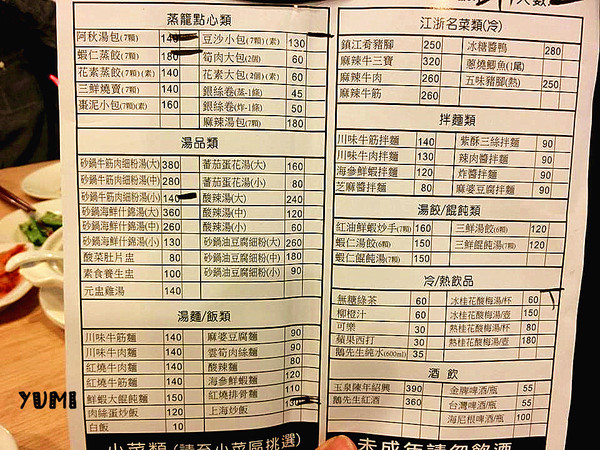 蒸籠點心類
阿秋湯包(7顆) 140 豆沙小包(7顆)(素) 130
蝦仁蒸餃(7顆) 180 筍肉大包(2個) 60
花素蒸餃(7顆)(素) 140 花素大包(2個)(素) 60
三鮮燒賣(7顆) 140 銀絲卷(蒸-1條) 45
棗泥小包(7顆)(素) 160 銀絲卷(炸-1條) 50
麻辣湯包(7顆) 180
湯品類
砂鍋牛筋肉細粉湯(大) 380 蕃茄蛋花湯(大) 160
砂鍋牛筋肉細粉湯(中) 280 蕃茄蛋花湯(小) 80
砂鍋牛筋肉細粉湯(小) 140 酸辣湯(大) 240
砂鍋海鮮什錦湯(大) 360 酸辣湯(中) 120
砂鍋海鮮什錦湯(中) 260 酸辣湯(小) 60
砂鍋海鮮什錦湯(小) 130 砂鍋油豆腐細粉(大) 260
酸菜肚片盅 80 砂鍋油豆腐細粉(中) 180
素食養生盅 100 砂鍋油豆腐細粉(小) 90
元盅雞湯 140
湯麵/飯類
川味牛筋麵 140 麻婆豆腐麵 90
川味牛肉麵 140 雪筍肉絲麵 90
紅燒牛肉麵 140 酸辣麵 80
紅燒牛筋麵 140 海參鮮蝦麵 120
鮮蝦大餛飩麵 150 紅燒排骨麵 110
肉絲蛋炒飯 120 上海炒飯 130
白飯 10
小菜類(請至小菜區挑選)
江浙名菜類(冷)
鎮江肴豬腳 250 冰糖醬鴨 280
麻辣牛三寶 320 蔥燒鯽魚(1尾)
麻辣牛肉 260 五味豬腳(熱) 250
麻辣牛筋 260
拌麵類
川味牛筋拌麵 140 紫酥三絲拌麵 90
川味牛肉拌麵 130 辣肉醬拌麵 90
海參鮮蝦拌麵 120 炸醬拌麵 90
芝麻醬拌麵 80 麻婆豆腐拌麵 90
湯餃/餛飩類
紅油鮮蝦炒手(7顆) 160 三鮮湯餃(6顆) 120
蝦仁湯餃(6顆) 150 三鮮餛飩湯(7顆) 120
蝦仁餛飩湯(7顆) 150
冷/熱飲品
無糖綠茶 60 冰桂花酸梅湯/杯 60
柳橙汁 60 冰桂花酸梅湯/壺 150
可樂 30 熱桂花酸梅湯/杯 80
蘋果西打 30 熱桂花酸梅湯/壺 180
鵝先生純水(600ml) 35
酒 飲
玉泉陳年紹興 390 金牌啤酒/瓶 55
鵝先生紅酒 360 台灣啤酒/瓶 55
海尼根啤酒/瓶 100
未成年請勿飲酒
YUMI